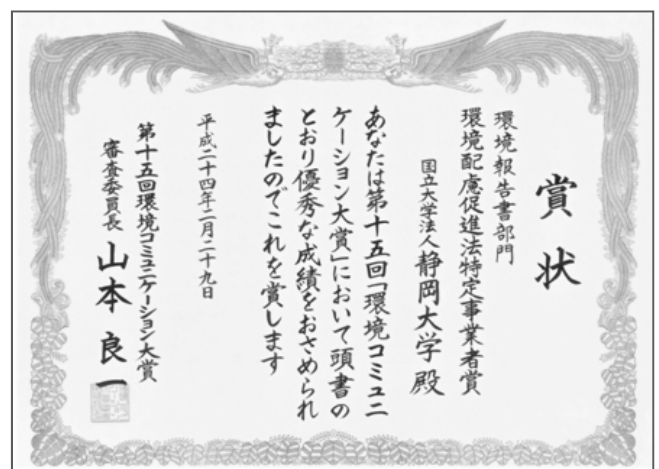 賞状
環境報告書部門
環境配慮促進法特定事業者賞
国立大学法人静岡大学殿
あなたは第十五回「環境コミュニ
ケーション大賞」において頭書の
とおり優秀な成績をおさめられ
ましたのでこれを賞します
平成二十四年二月二十九日
第十五回環境コミュニケーション大賞
審査委員長 山本良一